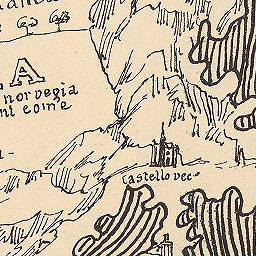 A
norvegia
nt come
castello vec